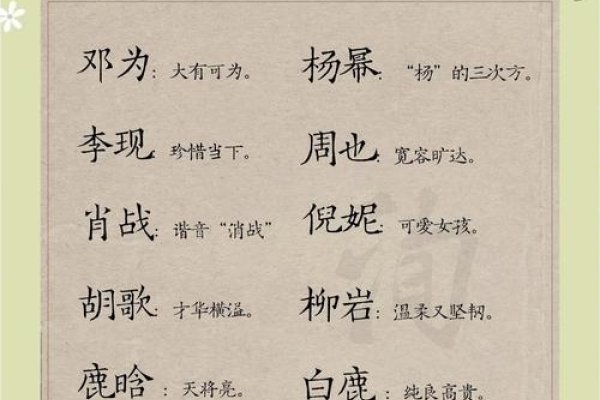 邓为：大有可为。 杨幂：“杨”的三次方。
李现：珍惜当下。 周也：宽容旷达。
肖战：谐音“消战” 倪妮：可爱女孩。
胡歌：才华横溢。 柳岩：温柔又坚韧。
鹿晗：天将亮。 白鹿：纯良高贵。